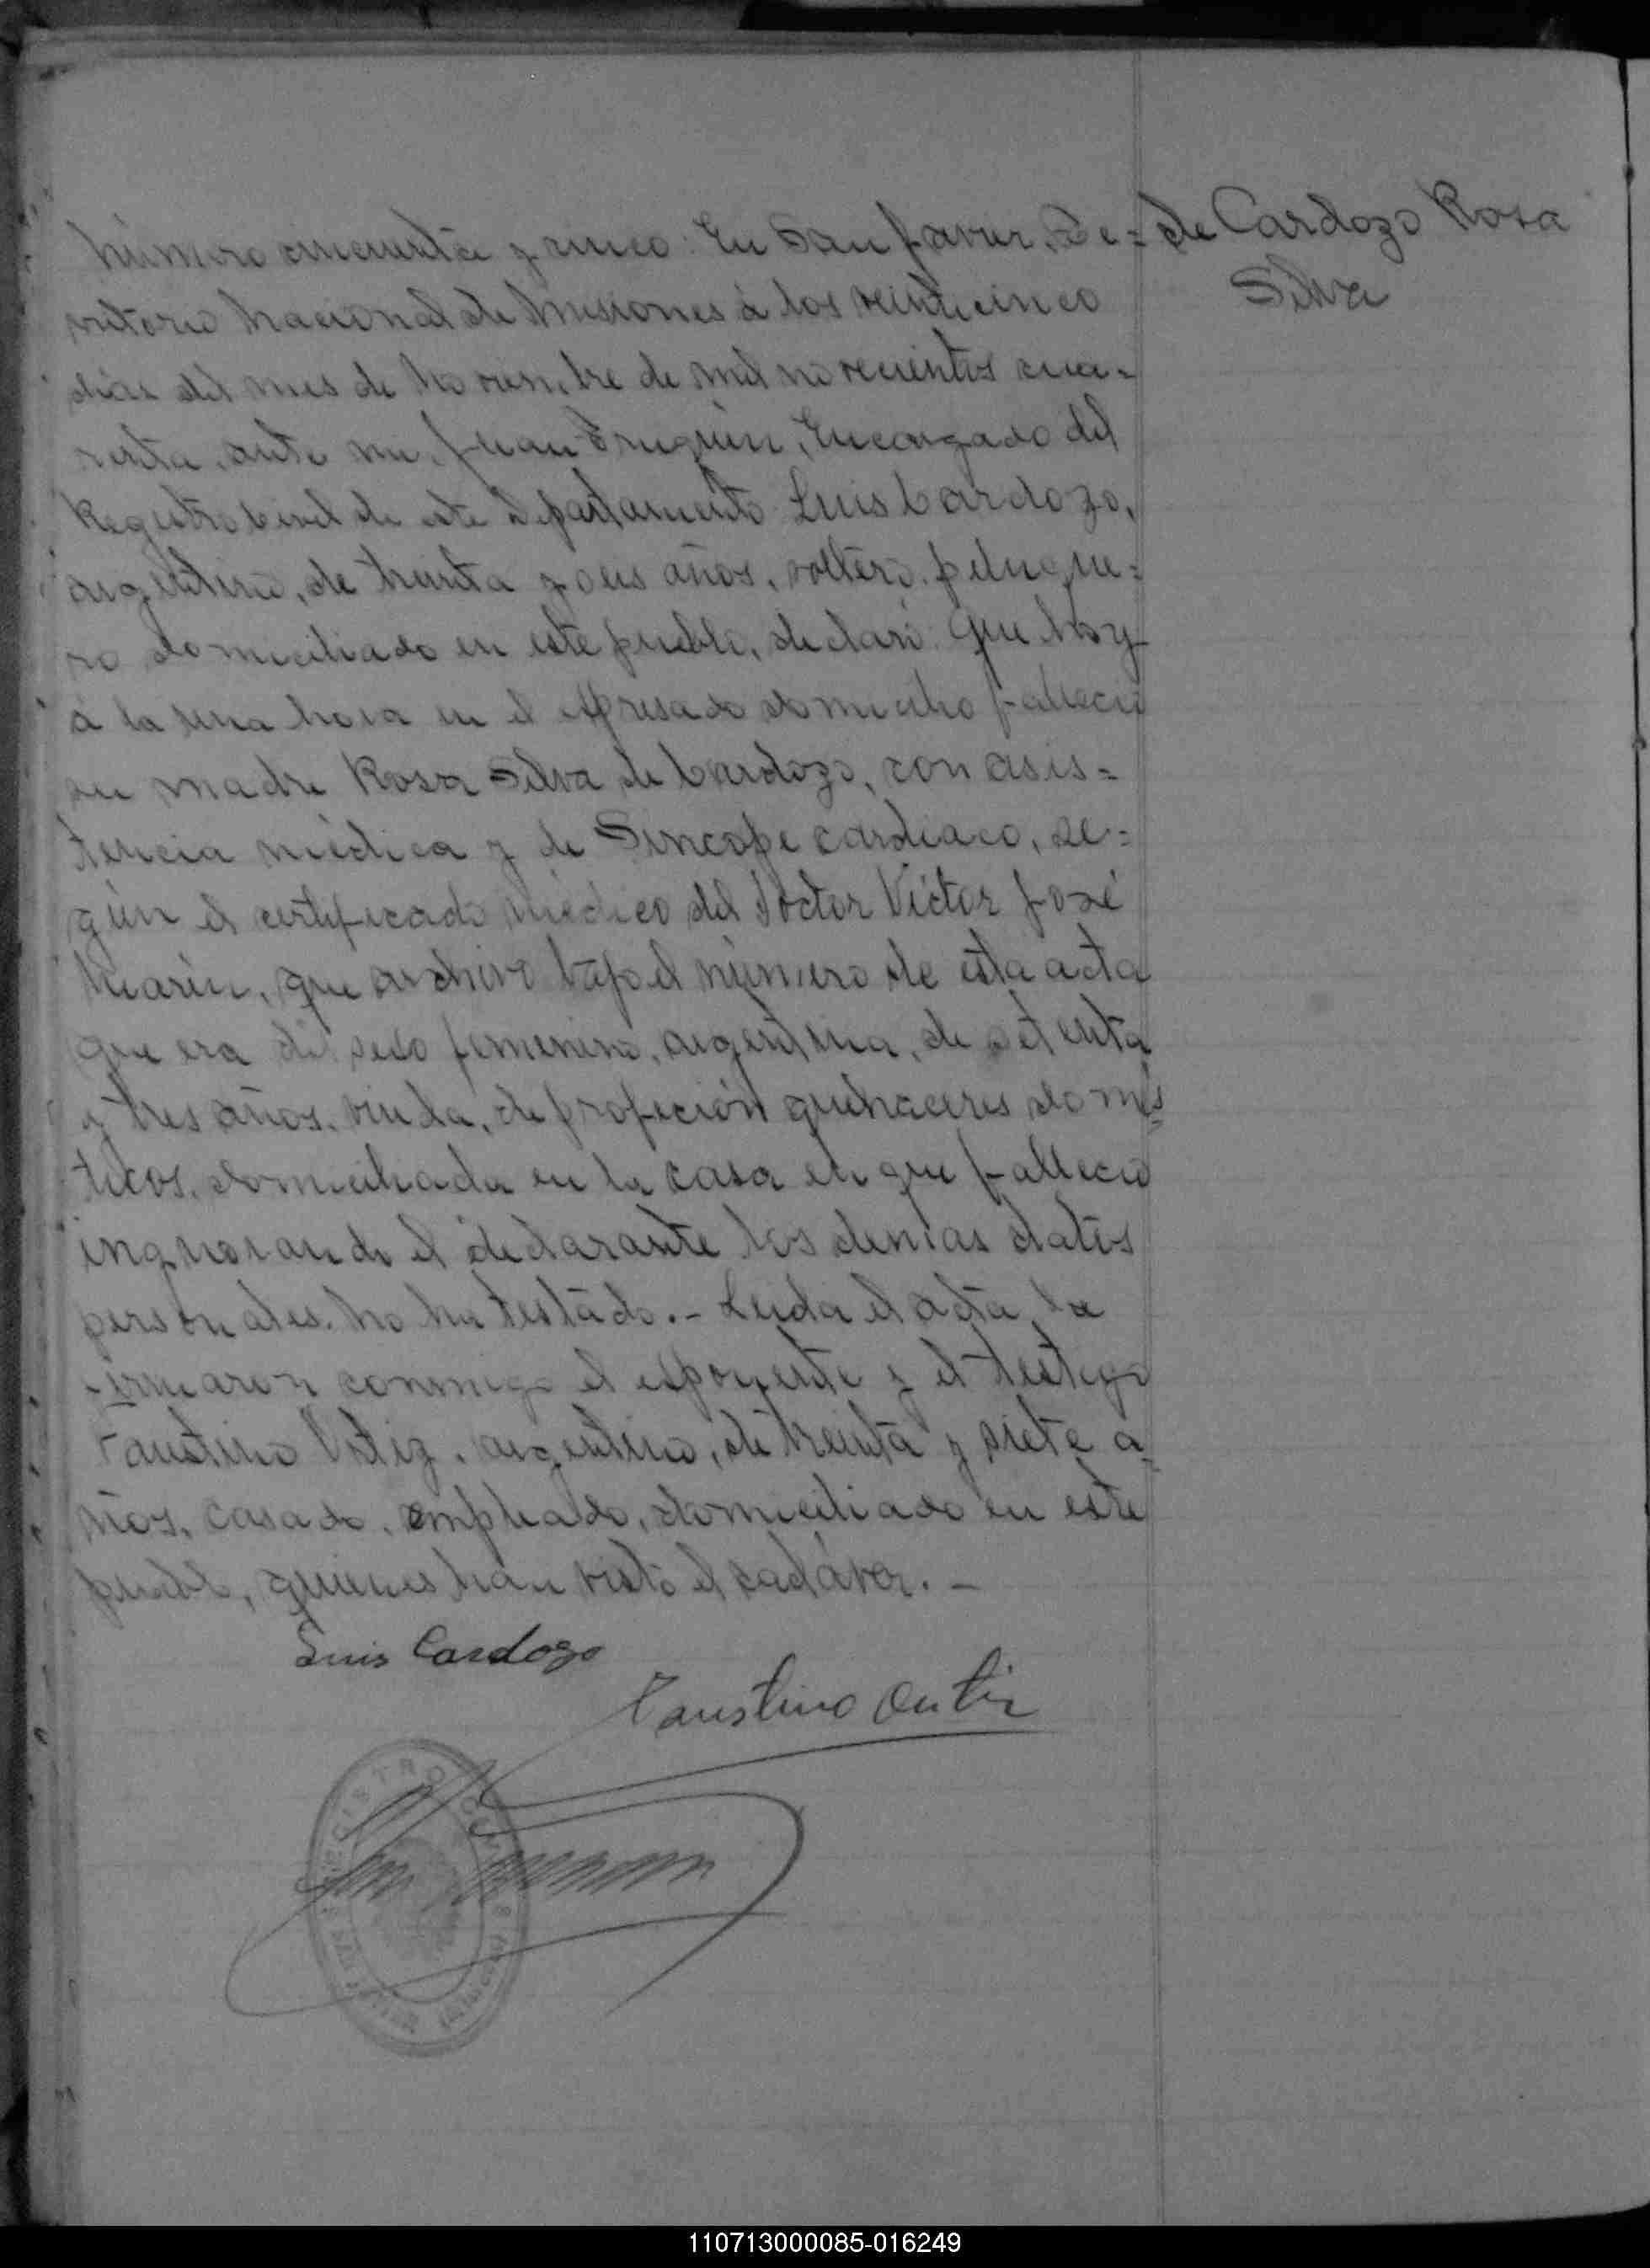 de Cardozo Rosa
Silva
Número cincuenta y cinco: En San Javier, Te=
rritorio Nacional de Misiones á los veinticinco
días del mes de Noviembre de mil novecientos cua=
renta, ante mi, Juan Encargado del
Registro Civil de este Departamento Luis Cardozo,
argentino, de treinta y seis años, soltero, peluque=
ro domiciliado en este pueblo, declaró: Que hoy
á la una hora en el espresado domicilio falleció
su madre Rosa Silva de Cardozo, con asis=
tencia médica y de Síncope cardíaco, se=
gún el certificado médico del Doctor Víctor José
Marín, que archivo bajo el número de esta acta
que era del sexo femenino, argentina, de setenta
y tres años, viuda, de profeción quehaceres domés=
ticos, domiciliada en la casa en que falleció
ingnorando el declarante los demás datos
personales. No ha testado.- Leida el acta, la
firmaron conmigo el esponente y el testigo
Faustino Ortiz, argentino, de treinta y siete a=
ños, casado, empleado, domiciliado en este
pueblo, quienes han visto el cadáver. -
Luis Cardozo
Faustino Ortiz
REGISTRO
110713000085-016249